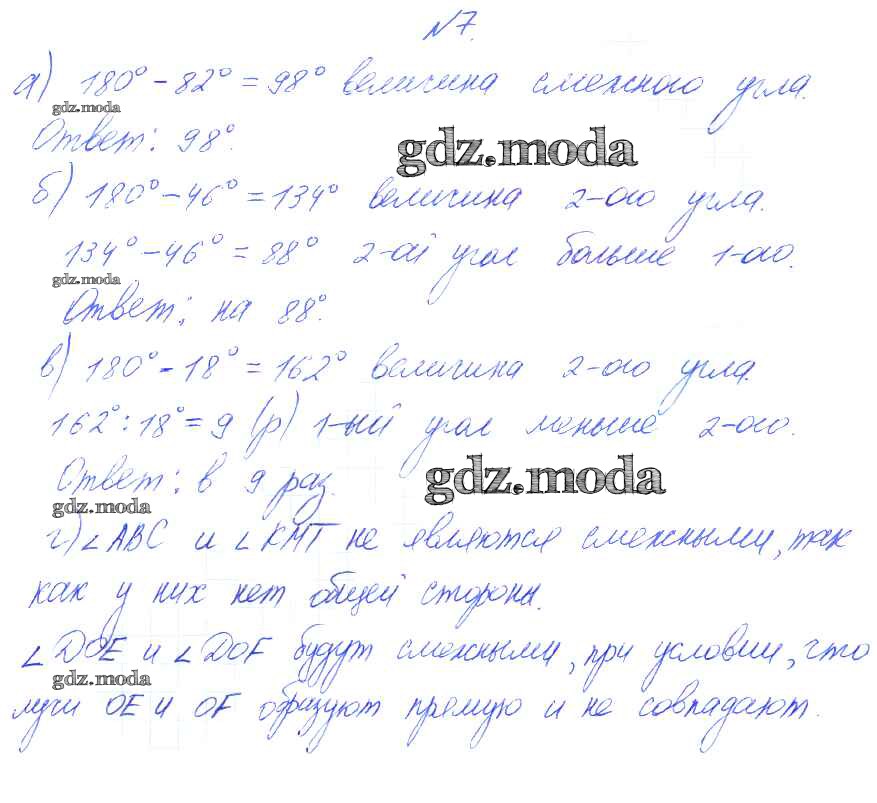 №7.
а) 180° - 82° = 98° величина смежного угла.
gdz.moda
Ответ: 98°.
gdz.moda
б) 180° - 46° = 134° величина 2-ого угла.
134° - 46° = 88° 2-ой угол больше 1-ого.
gdz.moda
Ответ: на 88°.
в) 180° - 18° = 162° величина 2-ого угла.
162° : 18° = 9 (р) 1-ый угол меньше 2-ого.
Ответ: в 9 раз.
gdz.moda
gdz.moda
г) ∠ABC и ∠KMT не являются смежными, так
как у них нет общей стороны.
∠DOE и ∠DOF будут смежными, при условии, что
gdz.moda
лучи OE и OF образуют прямую и не совпадают.